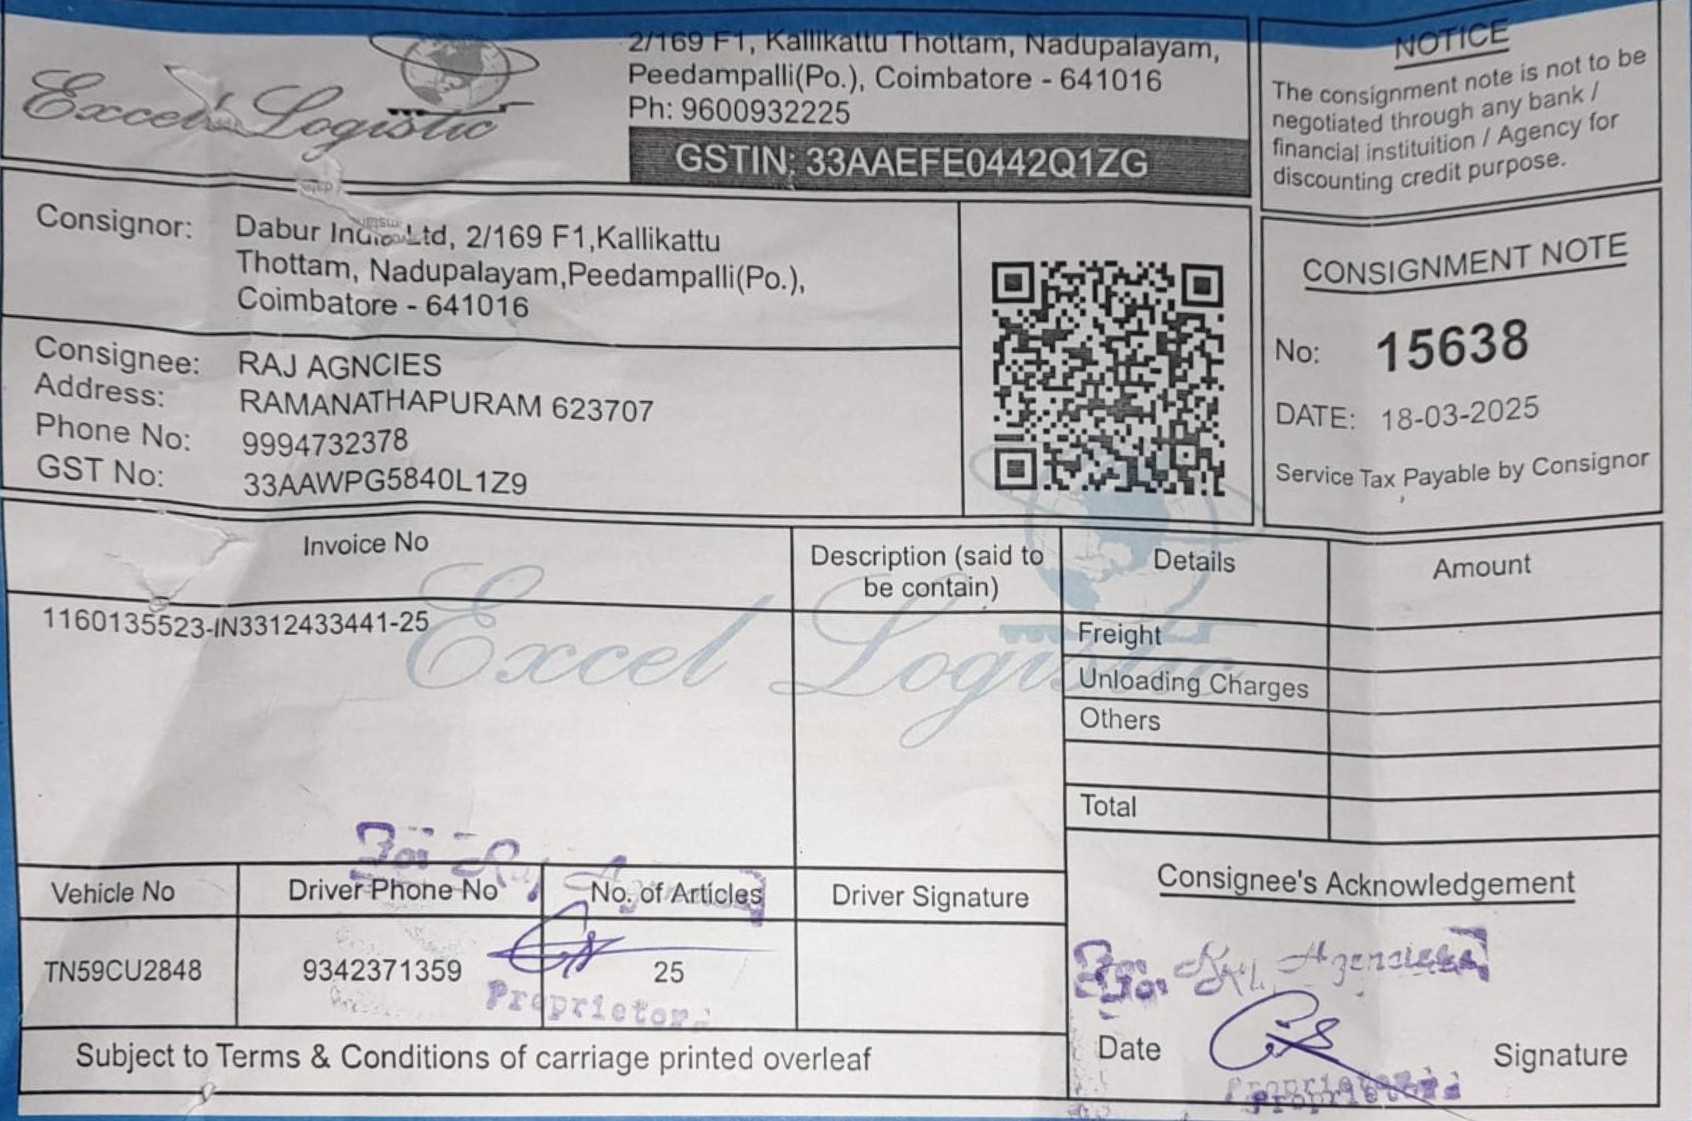 Excel Logistic
2/169 F1, Kallikattu Thottam, Nadupalayam,
Peedampalli(Po.), Coimbatore - 641016
Ph: 9600932225
GSTIN: 33AAEFE0442Q1ZG
NOTICE
The consignment note is not to be
negotiated through any bank /
financial instituition / Agency for
discounting credit purpose.
Consignor: Dabur India Ltd, 2/169 F1,Kallikattu
Thottam, Nadupalayam,Peedampalli(Po.),
Coimbatore - 641016
Consignee: RAJ AGNCIES
Address: RAMANATHAPURAM 623707
Phone No: 9994732378
GST No: 33AAWPG5840L1Z9
CONSIGNMENT NOTE
No: 15638
DATE: 18-03-2025
Service Tax Payable by Consignor
Invoice No
Description (said to
be contain)
Details
Amount
1160135523-IN3312433441-25
Excel Logistic
Freight
Unloading Charges
Others
Total
For Raj Agencies
Vehicle No
Driver Phone No
No. of Articles
Driver Signature
TN59CU2848
9342371359
25
Proprietor
Consignee's Acknowledgement
For Raj Agencies
Date
Signature
Proprietor
Subject to Terms & Conditions of carriage printed overleaf